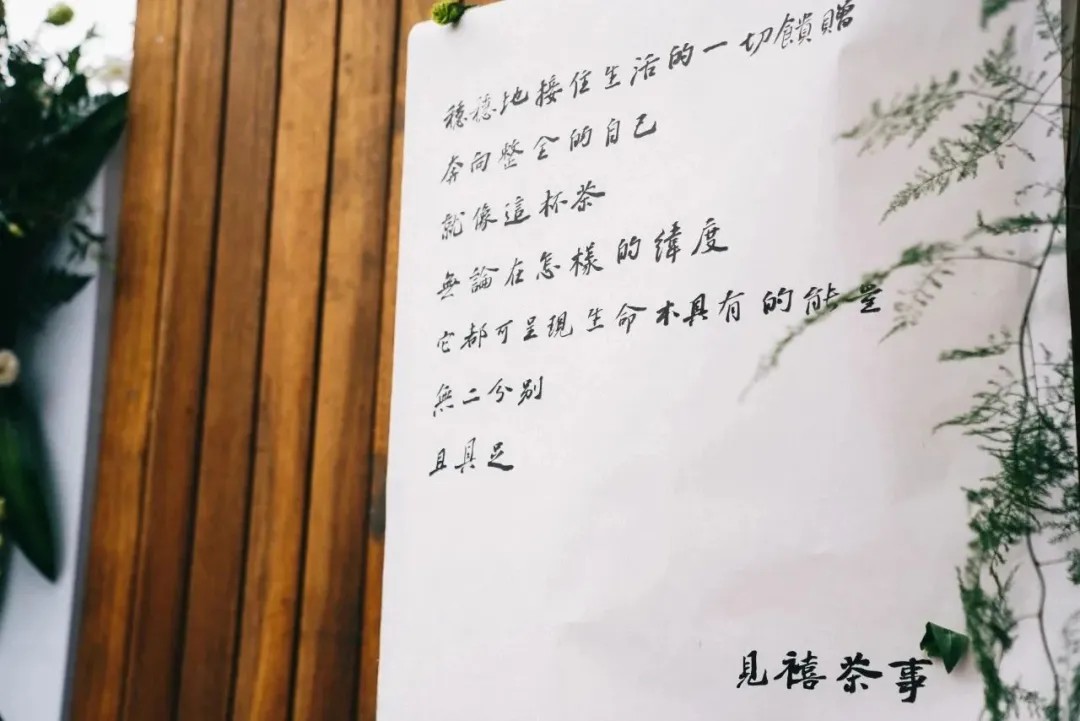 穩穩地接住生活的一切饋贈
奔向整全的自己
就像這杯茶
無論在怎樣的緯度
它都可呈現生命本具有的能量
無二分別
且具足
見禧茶事